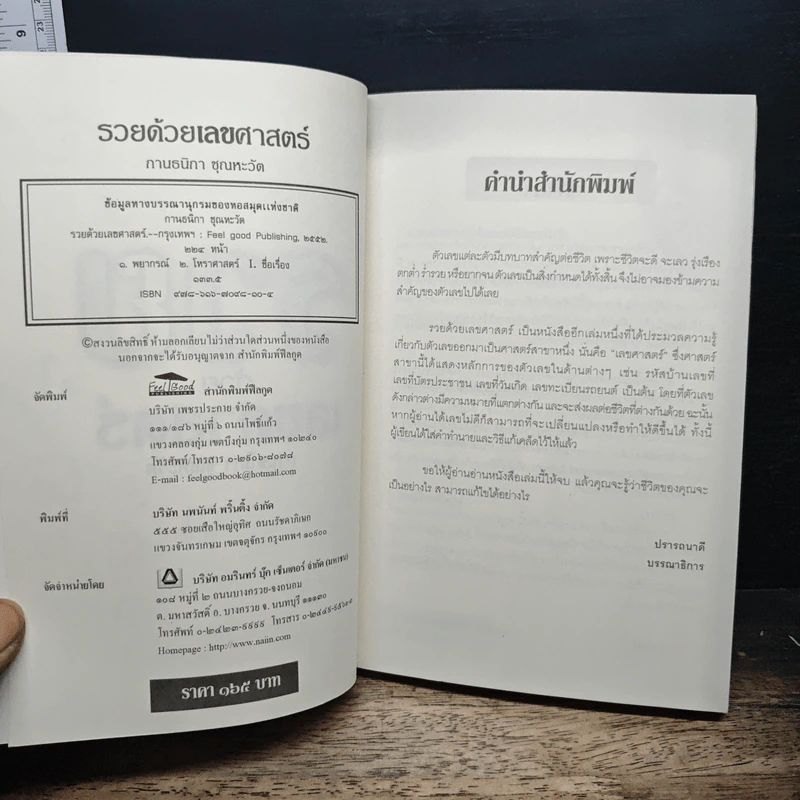 9
23
รวยด้วยเลขศาสตร์
กานธนิกา ชุณหะวัต
ข้อมูลทางบรรณานุกรมของหอสมุดแห่งชาติ
กานธนิกา ชุณหะวัต
รวยด้วยเลขศาสตร์.--กรุงเทพฯ : Feel good Publishing, ๒๕๕๒.
๒๒๔ หน้า
๑. พยากรณ์ ๒. โหราศาสตร์ I. ชื่อเรื่อง
๑๓๓.๕
ISBN ๙๗๘-๖๑๖-๗๐๙๘-๑๐-๕
©สงวนลิขสิทธิ์ ห้ามลอกเลียนไม่ว่าส่วนใดส่วนหนึ่งของหนังสือ
นอกจากจะได้รับอนุญาตจาก สำนักพิมพ์ฟีลกูด
จัดพิมพ์ Feel Good PUBLISHING สำนักพิมพ์ฟีลกูด
บริษัท เพชรประกาย จำกัด
๑๑๑/๑๘๖ หมู่ที่ ๖ ถนนโพธิ์แก้ว
แขวงคลองกุ่ม เขตบึงกุ่ม กรุงเทพฯ ๑๐๒๔๐
โทรศัพท์/โทรสาร ๐-๒๕๐๖-๘๐๗๘
E-mail : feelgoodbook@hotmail.com
พิมพ์ที่ บริษัท นพนันท์ พริ้นติ้ง จำกัด
๕๕๕ ซอยเสือใหญ่อุทิศ ถนนรัชดาภิเษก
แขวงจันทรเกษม เขตจตุจักร กรุงเทพฯ ๑๐๙๐๐
จัดจำหน่ายโดย บริษัท อมรินทร์ บุ๊ค เซ็นเตอร์ จำกัด (มหาชน)
๑๐๘ หมู่ที่ ๒ ถนนบางกรวย-จงถนอม
ต. มหาสวัสดิ์ อ. บางกรวย จ. นนทบุรี ๑๑๑๓๐
โทรศัพท์ ๐-๒๔๒๓-๙๙๙๙ โทรสาร
Homepage : http://www.naiin.com
ราคา ๑๖๕ บาท
คำนำสำนักพิมพ์
ตัวเลขแต่ละตัวมีบทบาทสำคัญต่อชีวิต เพราะชีวิตจะดี จะเลว รุ่งเรือง
ตกต่ำ ร่ำรวย หรือยากจน ตัวเลขเป็นสิ่งกำหนดได้ทั้งสิ้น จึงไม่อาจมองข้ามความ
สำคัญของตัวเลขไปได้เลย
รวยด้วยเลขศาสตร์ เป็นหนังสืออีกเล่มหนึ่งที่ได้ประมวลความรู้
เกี่ยวกับตัวเลขออกมาเป็นศาสตร์สาขาหนึ่ง นั่นคือ “เลขศาสตร์” ซึ่งศาสตร์
สาขานี้ได้แสดงหลักการของตัวเลขในด้านต่างๆ เช่น รหัสบ้านเลขที่
เลขที่บัตรประชาชน เลขที่วันเกิด เลขทะเบียนรถยนต์ เป็นต้น โดยที่ตัวเลข
ดังกล่าวต่างมีความหมายที่แตกต่างกัน และจะส่งผลต่อชีวิตที่ต่างกันด้วย ฉะนั้น
หากผู้อ่านได้เลขไม่ดีก็สามารถที่จะเปลี่ยนแปลงหรือทำให้ดีขึ้นได้ ทั้งนี้
ผู้เขียนได้ใส่คำทำนายและวิธีแก้เคล็ดไว้ให้แล้ว
ขอให้ผู้อ่านอ่านหนังสือเล่มนี้ให้จบ แล้วคุณจะรู้ว่าชีวิตของคุณจะ
เป็นอย่างไร สามารถแก้ไขได้อย่างไร
ปรารถนาดี
บรรณาธิการ